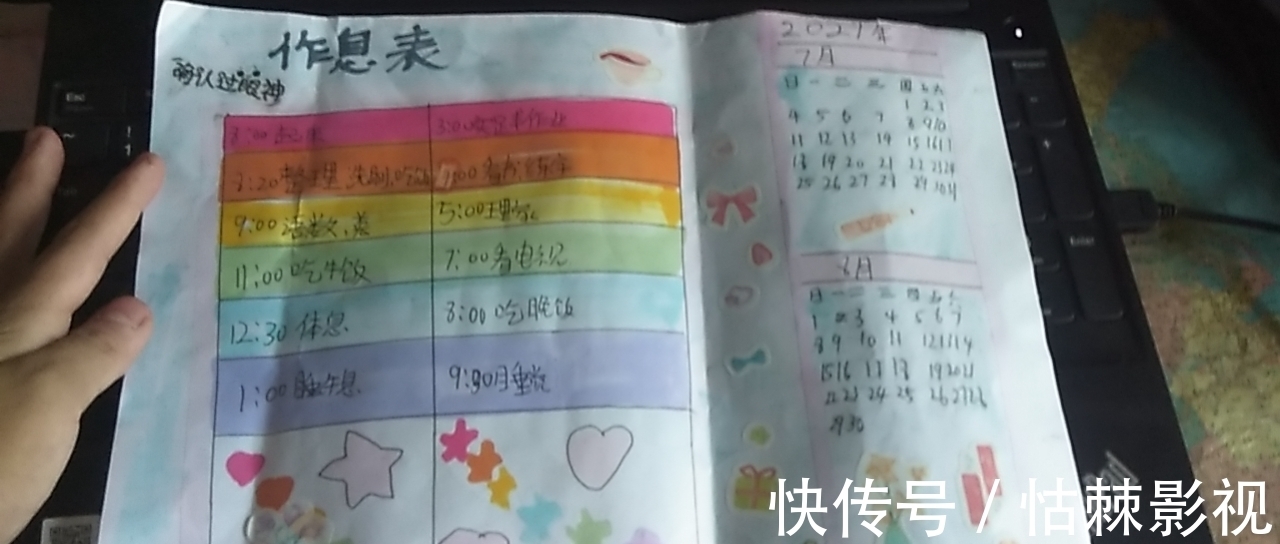 作息表
确认过眼神
8:00起床
8:20整理 洗刷,吃饭
4:00看书,练字
9:00语数、英
5:00
11:00吃午饭
7:00看电视
12:30休息
8:00吃晚饭
1:00睡午息
9:30睡觉
2021年
7月
日一二三四五六
1 2 3
4 5 6 7 8 9 10
11 12 13 14 15 16 17
18 19 20 21 22 23 24
25 26 27 28 29 30 31
8月
日一二三四五六
1 2 3 4 5 6 7
8 9 10 11 12 13 14
15 16 17 18 19 20 21
22 23 24 25 26 27 28
29 30
Esc
Enter
快传号 / 怙棘影视